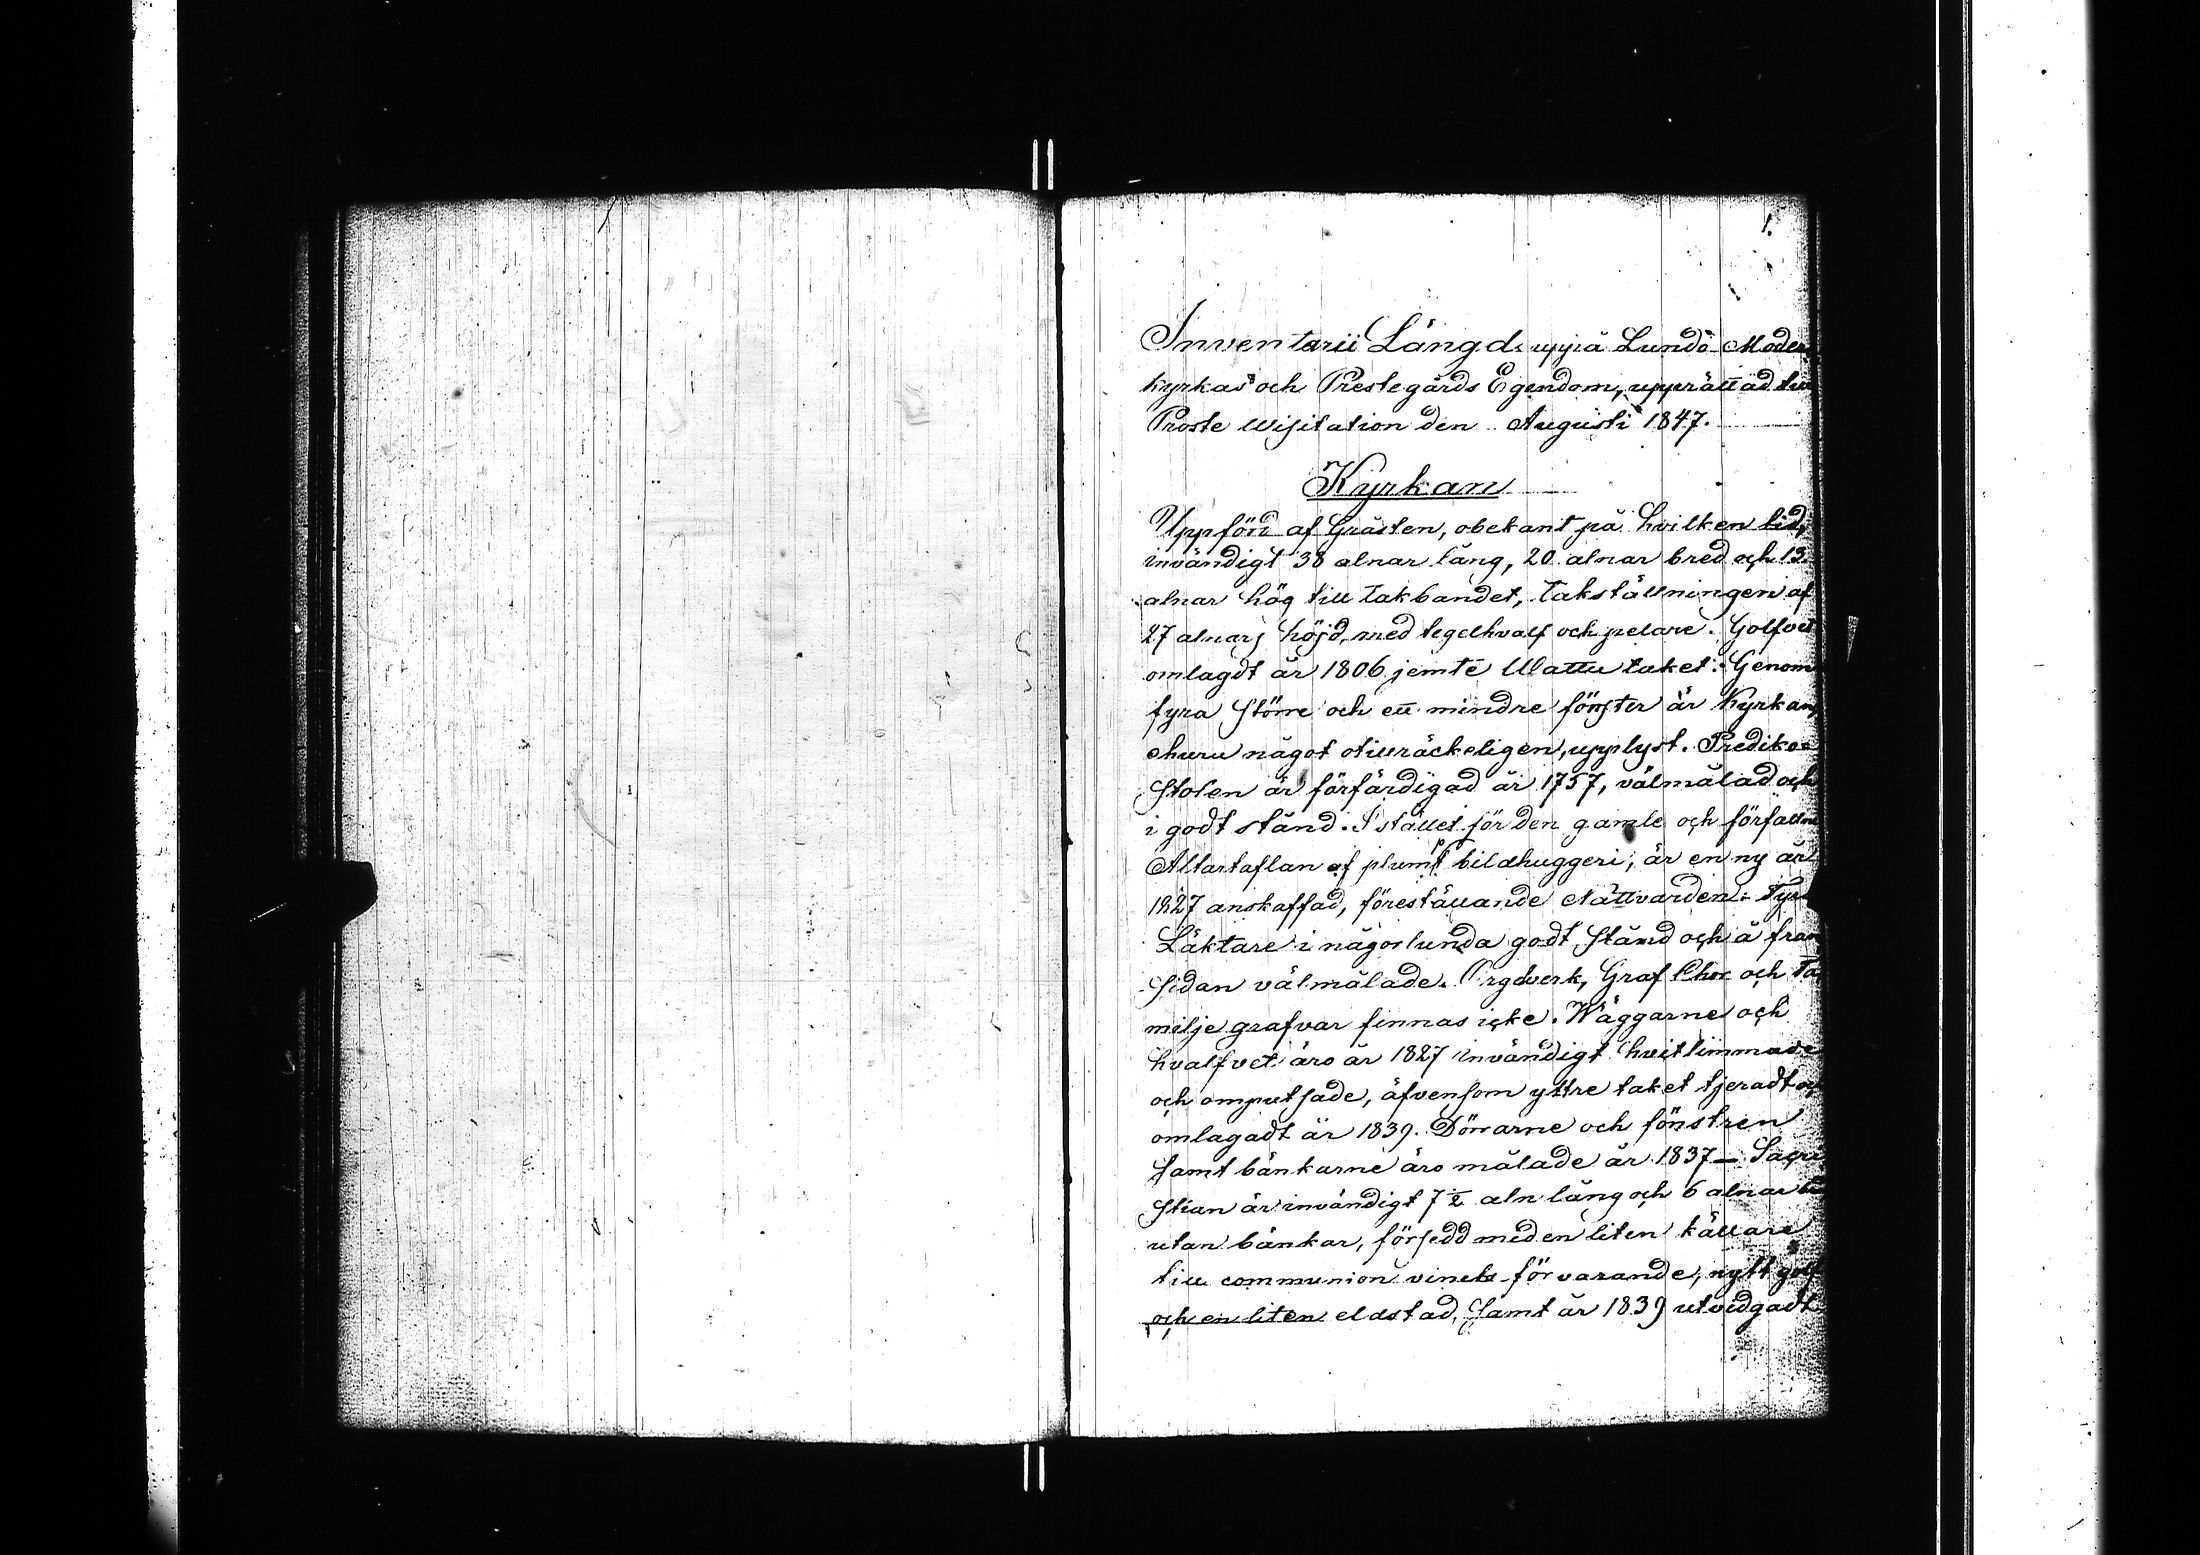 1.
Inventarii Längd uppå Lundo Moder
kyrkas och Prestegårds Egendom, upprättad till
Proste Wisitation den Augusti 1847.
Kyrkan
Uppförd af Gråsten, obekant på hvilken tid,
invändigt 38 alnar lång, 20 alnar bred och 13
alnar hög till takbandet, takställningen af
27 alnars höjd, med tegelhvalf och pelare. Golfvet
omlagdt år 1806 jemte Wattu taket. Genom
fyra större och ett mindre fönster är Kyrkan,
ehuru något otillräckeligen, upplyst. Prediko=
stolen är förfärdigad år 1757, välmålad och
i godt stånd. I stället för den gamle och förfallne
Altartaflan af plumt bildhuggeri, är en ny år
1827 anskaffad, föreställande Nattvarden.
Läktare i någorlunda godt stånd och å fram
sidan välmålade. Orgelverk, Graf Chor och Fa
milje grafvar finnas icke. Wäggarne och
hvalfvet äro år 1827 invändigt hvitlimmade
och omputsade, äfvensom yttre taket tjeradt och
omlagadt år 1839. Dörrarne och fönstren
samt bänkarne äro målade år 1837 – Sacri
stian är invändigt 7 1/2 aln lång och 6 alnar
utan bänkar, försedd med en liten källare
till communion vinets förvarande, nytt golf
och en liten eldstad, samt år 1839 utvidgadt